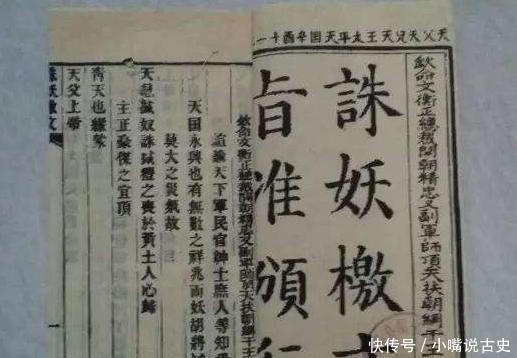 天父天兄天王太平天囯辛酉十一
欽命文衡正總裁開朝精忠又副軍師頂天扶朝綱干王
誅妖檄
旨准頒行
欽命文衡正總裁開朝精忠又副軍師頂天扶朝綱干王
諭天下軍民官紳士庶人等知
天囯永興也有無數之祥兆而妖胡將
莫大之災氣故
天奴誅豐之喪於黃土人心歸
主正豪傑之宜頂
青天也緣蒙
天父上帝
誅妖檄文
一
快传号/小嘴说古史